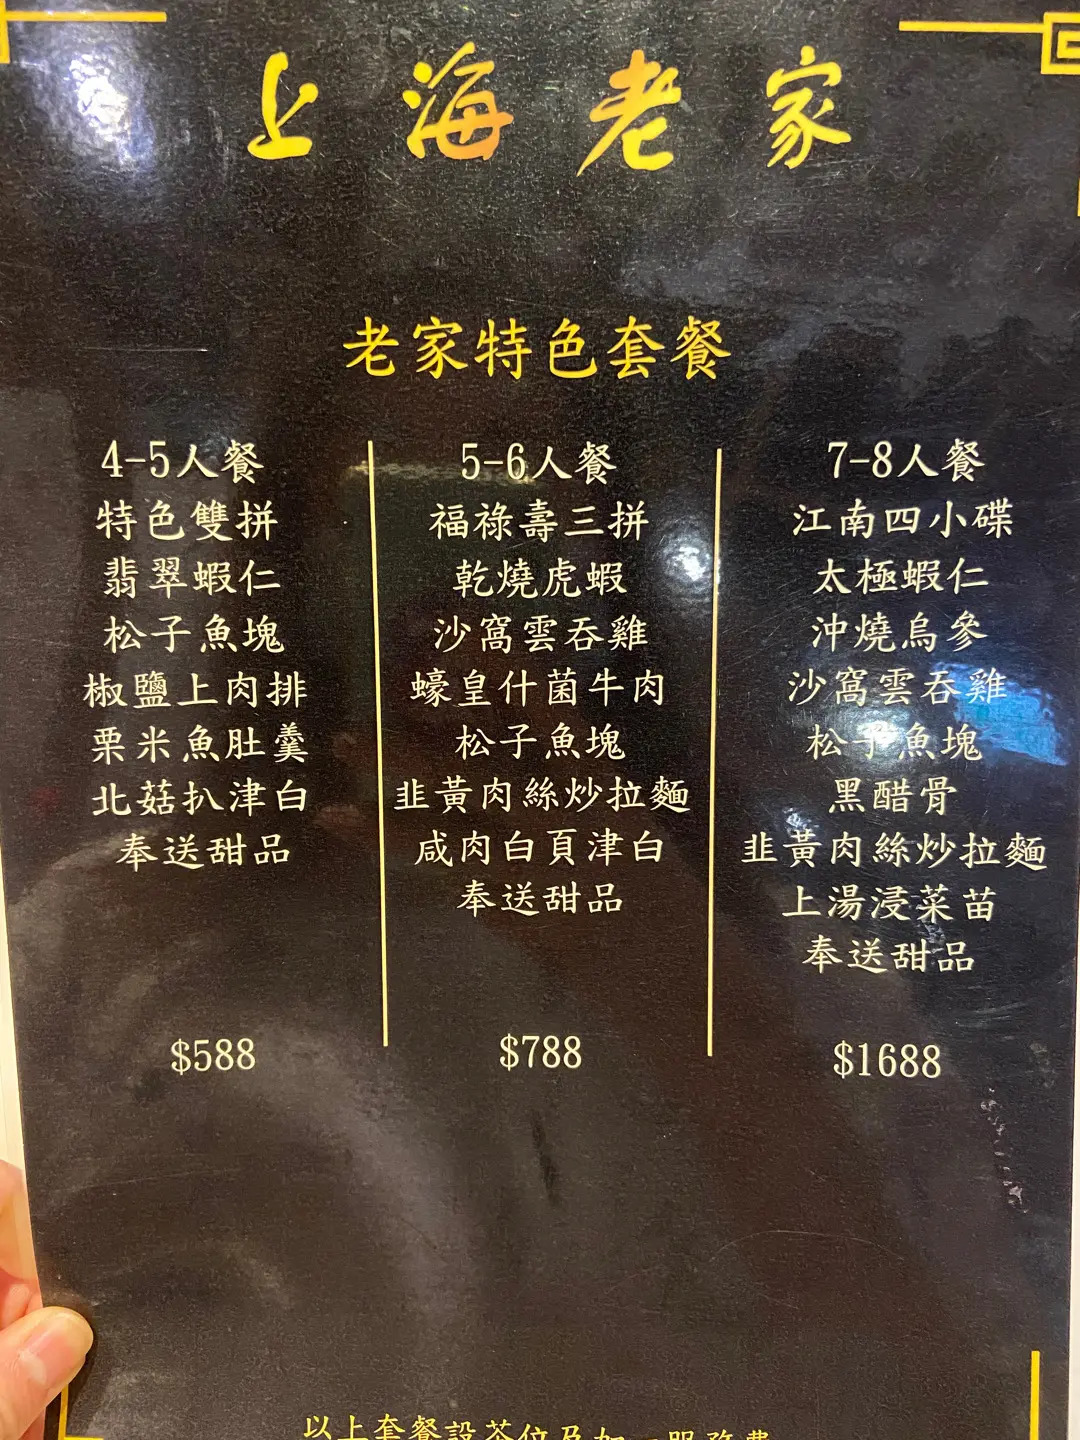 上海老家
老家特色套餐
4-5人餐
特色雙拼
翡翠蝦仁
松子魚塊
椒鹽上肉排
栗米魚肚羹
北菇扒津白
奉送甜品
$588
5-6人餐
福祿壽三拼
乾燒虎蝦
沙窩雲吞雞
蠔皇什菌牛肉
松子魚塊
韭黃肉絲炒拉麵
咸肉白頁津白
奉送甜品
$788
7-8人餐
江南四小碟
太極蝦仁
沖燒烏參
沙窩雲吞雞
松子魚塊
黑醋骨
韭黃肉絲炒拉麵
上湯浸菜苗
奉送甜品
$1688
以上套餐設茶位及加一服務費